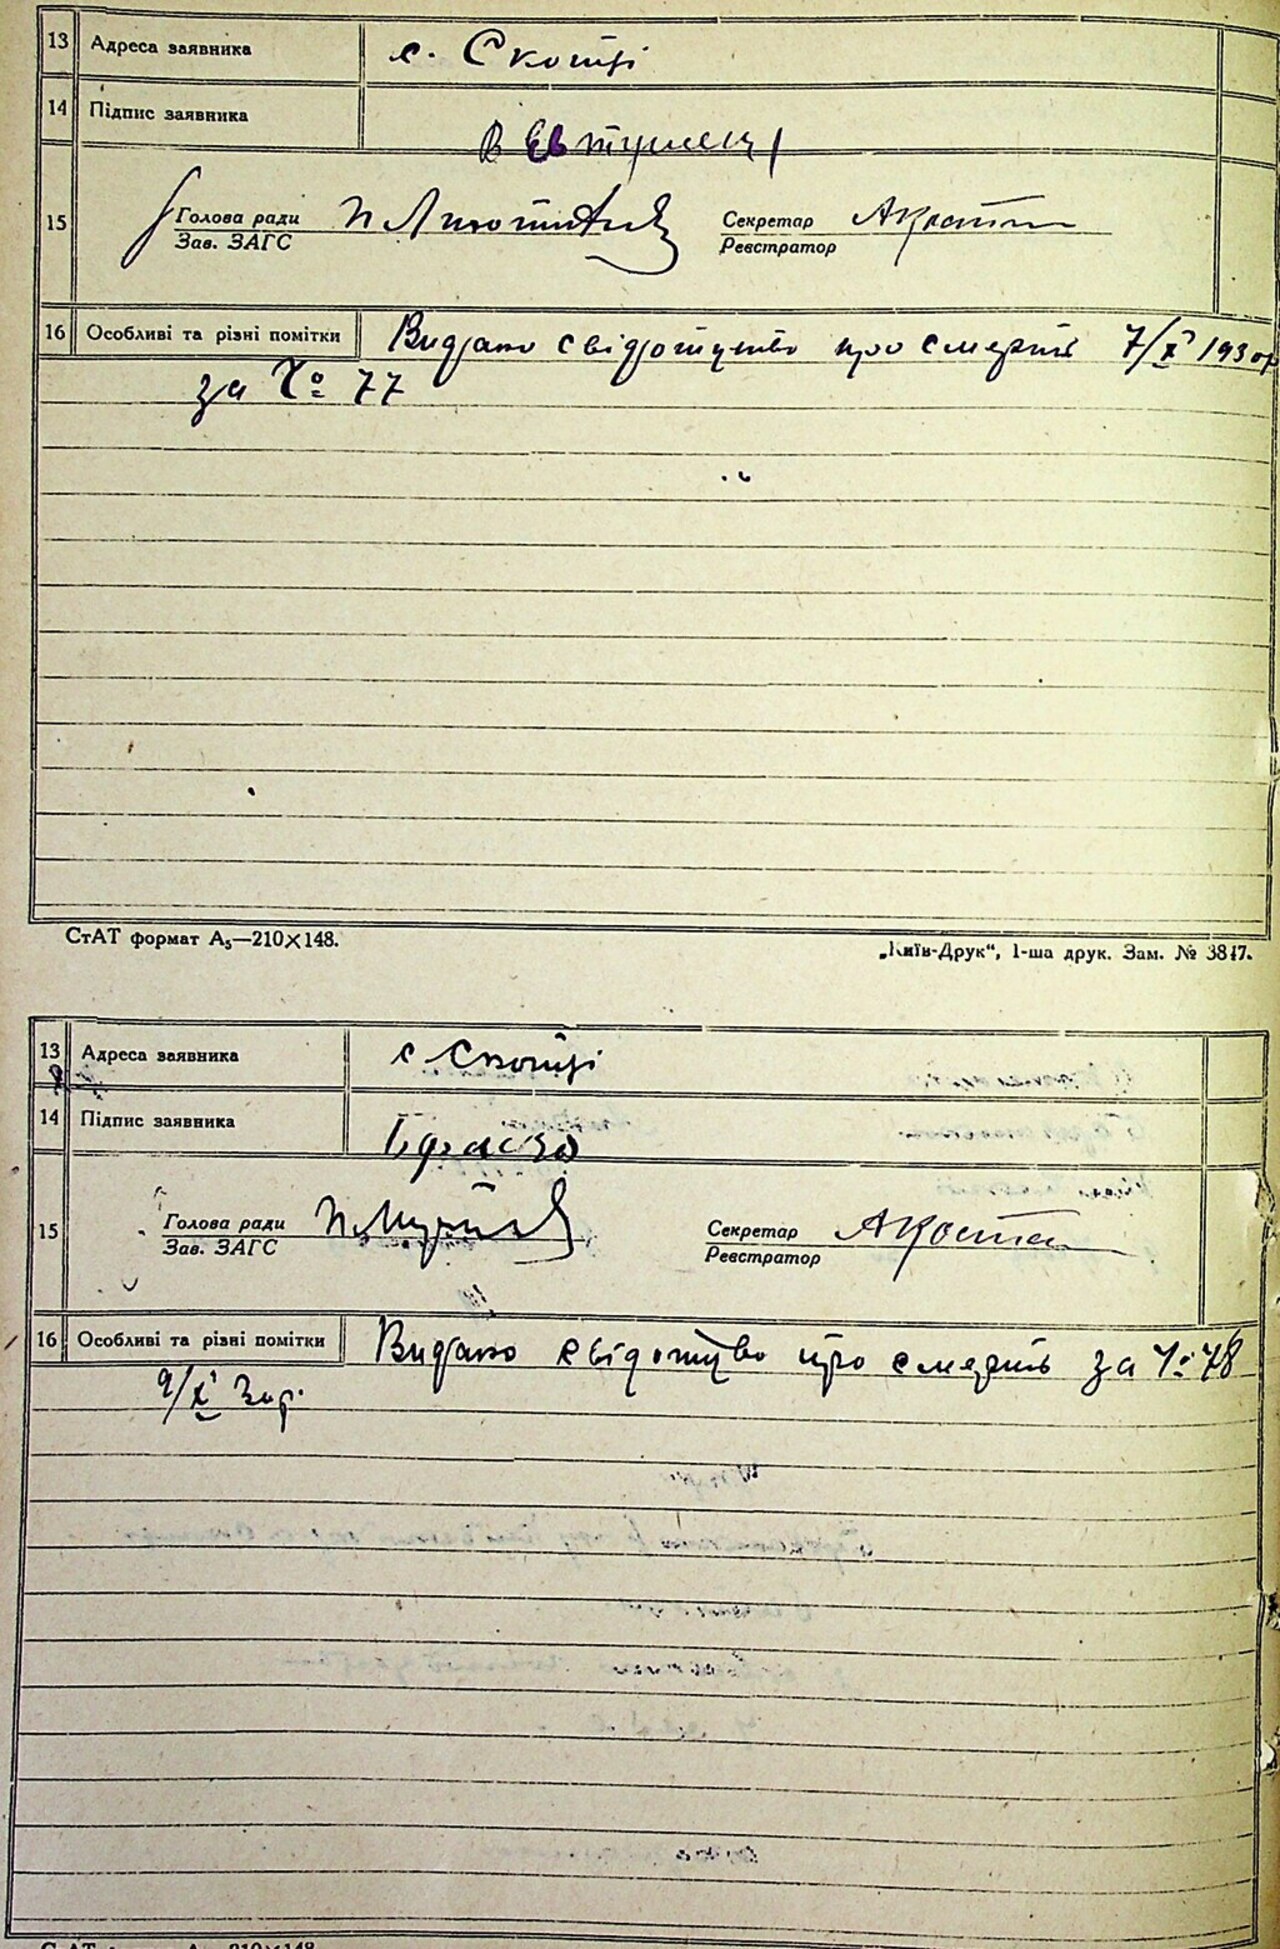 13 Адреса заявника с. Скотці
14 Підпис заявника
15 Голова ради Секретар
Зав. ЗАГС Реєстратор
16 Особливі та різні помітки Видано свідотцтво про смерть 7/X 1930р
за № 77
СтАТ формат А₅—210×148.
„Київ-Друк“, 1-ша друк. Зам. № 3847.
13 Адреса заявника с Скотці
14 Підпис заявника
15 Голова ради Секретар
Зав. ЗАГС Реєстратор
16 Особливі та різні помітки Видано свідотцтво про смерть за № 78
9/X 30р.